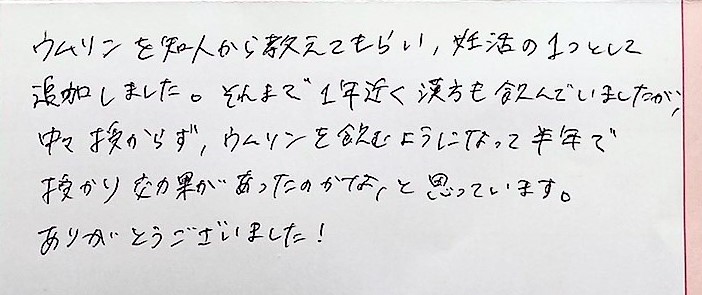 ウムリンを知人から教えてもらい,妊活の1つとして
追加しました。それまで1年近く漢方も飲んでいましたが,
中々授からず,ウムリンを飲むようになって半年で
授かり効果があったのかな,と思っています。
ありがとうございました!